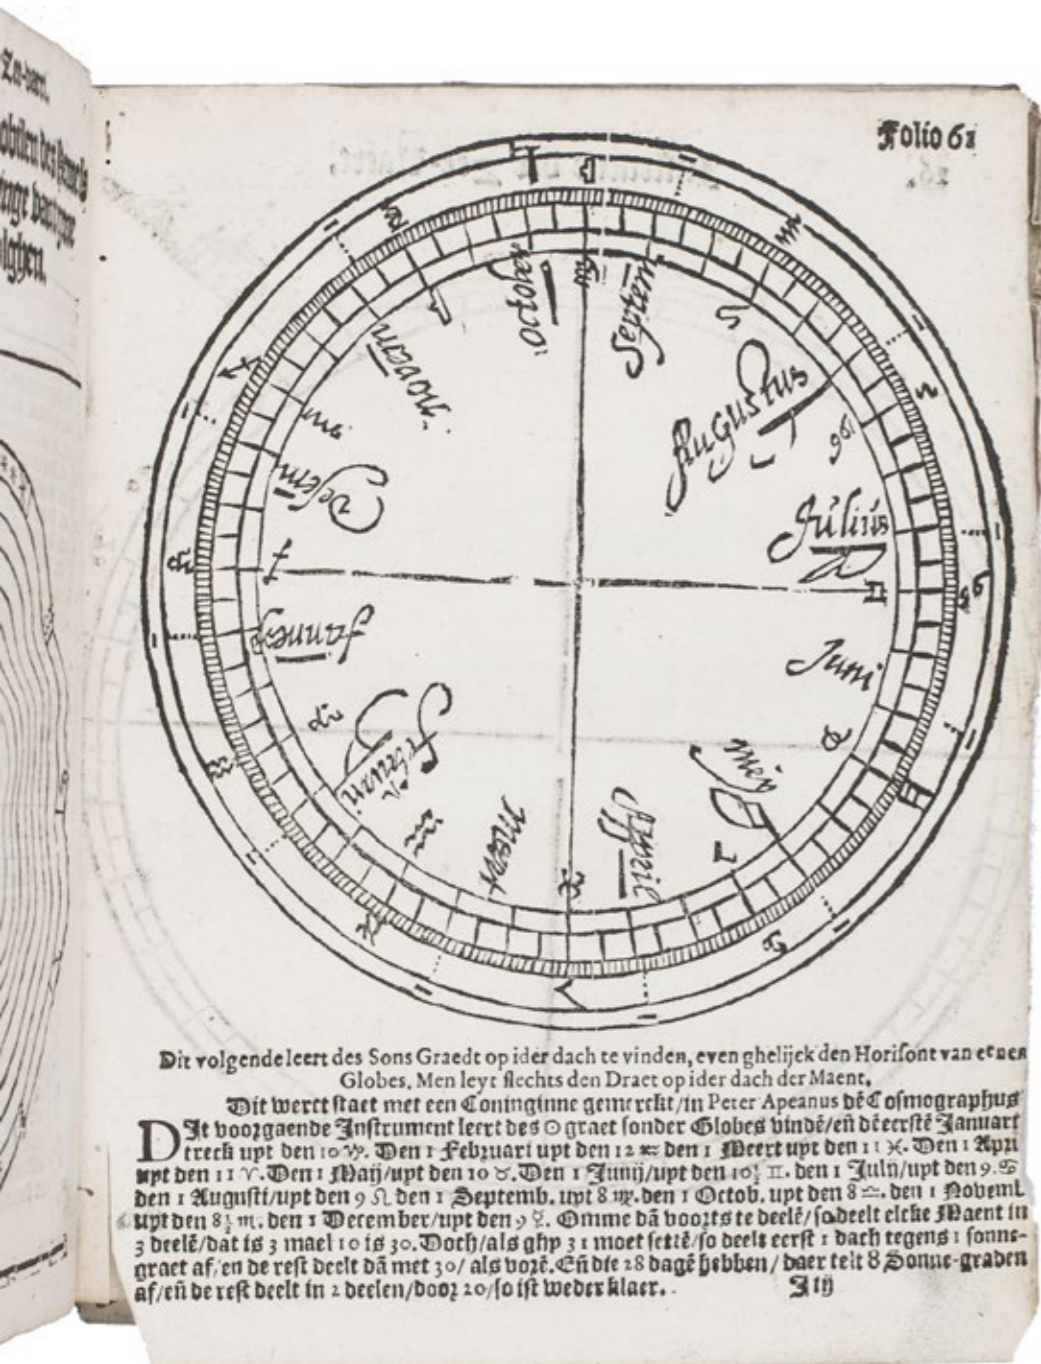 Folio 61
October
Septem
Novem
Augustus
Desem
Julius
Januery
Juni
Februari
Meij
Meert
Appril
Dit volgende leert des Sons Graedt op ider dach te vinden, even ghelijck den Horisont van eenen
Globes. Men leyt slechts den Draet op ider dach der Maent.
Dit werct staet met een Coninginne gemerckt/in Peter Apeanus dē Cosmographus
DIt voorgaende Instrument leert des ☉ graet sonder Globes vindē/eñ dē eerstē Januari
treck upt den 10 ♑. Den 1 Februari upt den 12 ♒ den 1 Meert upt den 11 ♓. Den 1 Apri
upt den 11 ♈. Den 1 Maij/upt den 10 ♉. Den 1 Junij/upt den 10½ ♊. den 1 Julij/upt den 9. ♋
den 1 Augusti/upt den 9 ♌ den 1 Septemb. upt 8 ♍. den 1 Octob. upt den 8 ♎. den 1 Novemb.
upt den 8½ ♏. den 1 December/upt den 9 Omme dā voorts te deelē/so deelt elcke Maent in
3 deelē/dat is 3 mael 10 is 30. Doch/als ghy 31 moet settē/so deelt eerst 1 dach tegens 1 sonne-
graet af/en de rest deelt dā met 30/ als vorē. Eñ die 28 dagē hebben/daer telt 8 Sonne-graden
af/eñ de rest deelt in 2 deelen/door 20/so ist weder klaer.